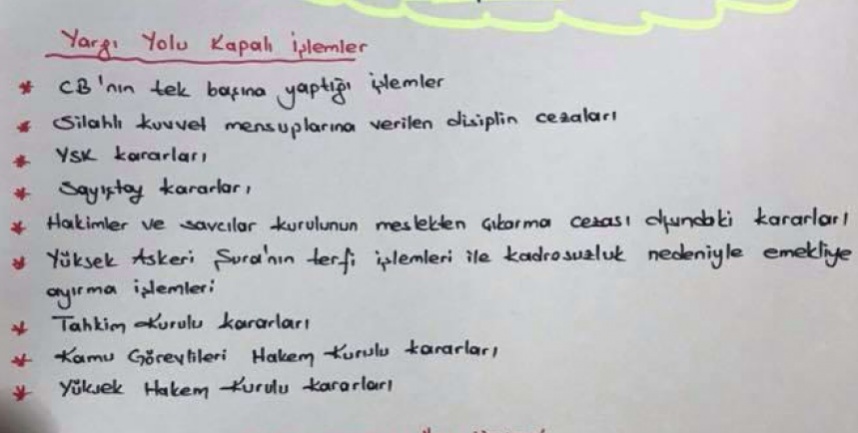 Yargı Yolu Kapalı işlemler
* CB'nın tek başına yaptığı işlemler
* Silahlı kuvvet mensuplarına verilen disiplin cezaları
* YSK kararları
* Sayıştay kararları
* Hakimler ve savcılar kurulunun meslekten çıkarma cezası dışındaki kararları
* Yüksek Askeri Şura'nın terfi işlemleri ile kadrosuzluk nedeniyle emekliye
ayırma işlemleri
* Tahkim Kurulu kararları
* Kamu Görevlileri Hakem Kurulu kararları
* Yüksek Hakem Kurulu kararları